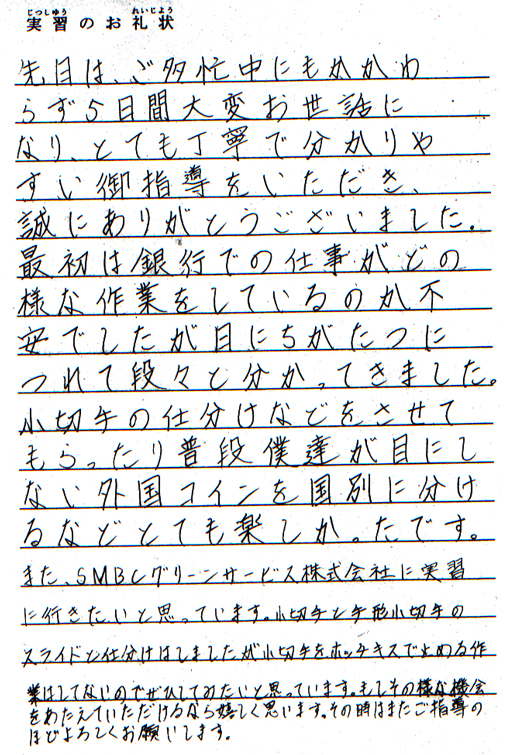 じつしゅう れいじょう
実習のお礼状
先日は、ご多忙中にもかかわ
らず5日間大変お世話に
なり、とても丁寧で分かりや
すい御指導をいただき、
誠にありがとうございました。
最初は銀行での仕事がどの
様な作業をしているのか不
安でしたが日にちがたつに
つれて段々と分かってきました。
小切手の仕分けなどをさせて
もらったり普段僕達が目にし
ない外国コインを国別に分け
るなどとても楽しかったです。
また、SMBCグリーンサービス株式会社に実習
に行きたいと思っています。小切手と手形小切手の
スライドと仕分けはしましたが小切手をホッチキスで止める作
業はしてないのでぜひしてみたいと思っています。もしその様な機会
をあたえていただけるなら嬉しく思います。その時はまたご指導の
ほどよろしくお願いします。